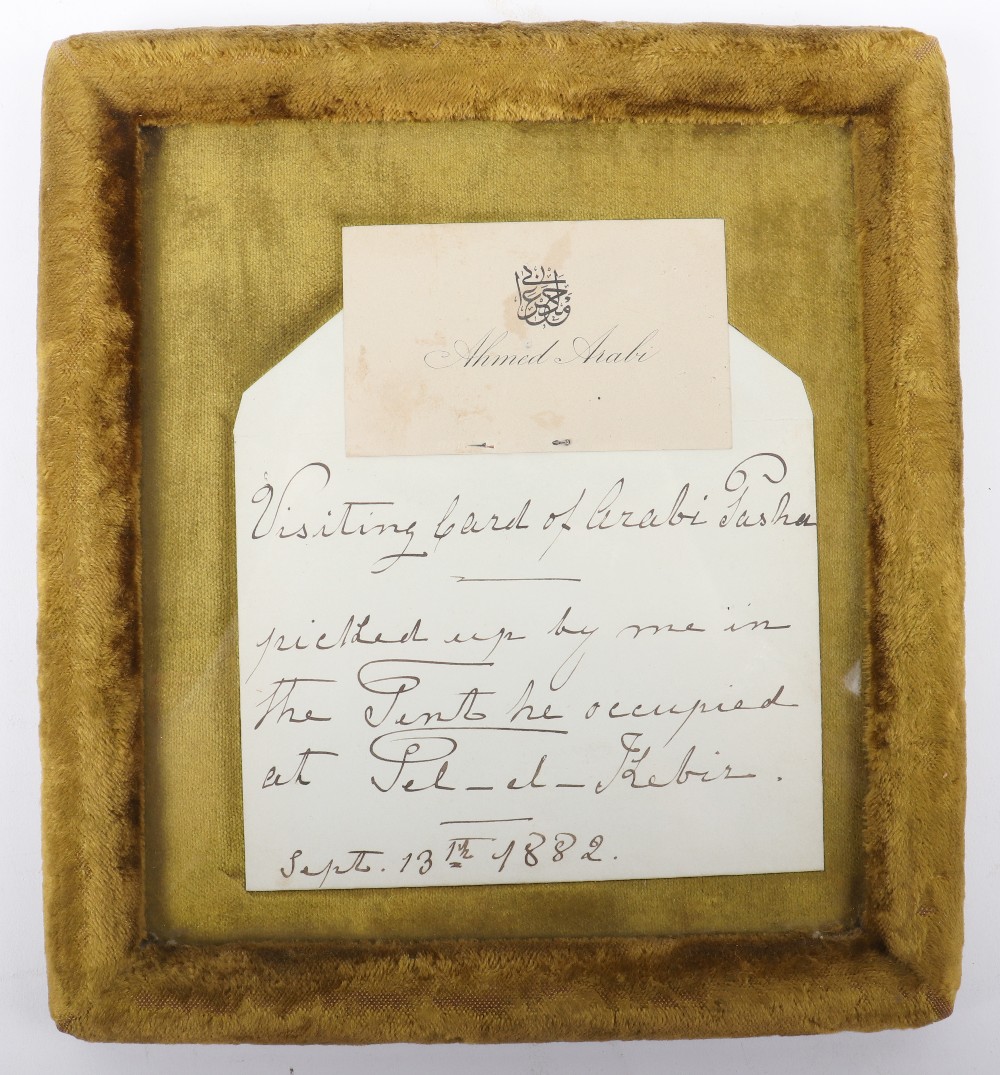 احمد عرابي
Ahmed Arabi
Visiting Card of Arabi Pasha
picked up by me in
the Tent he occupied
at Tel-el-Kebir.
Sept. 13th 1882.